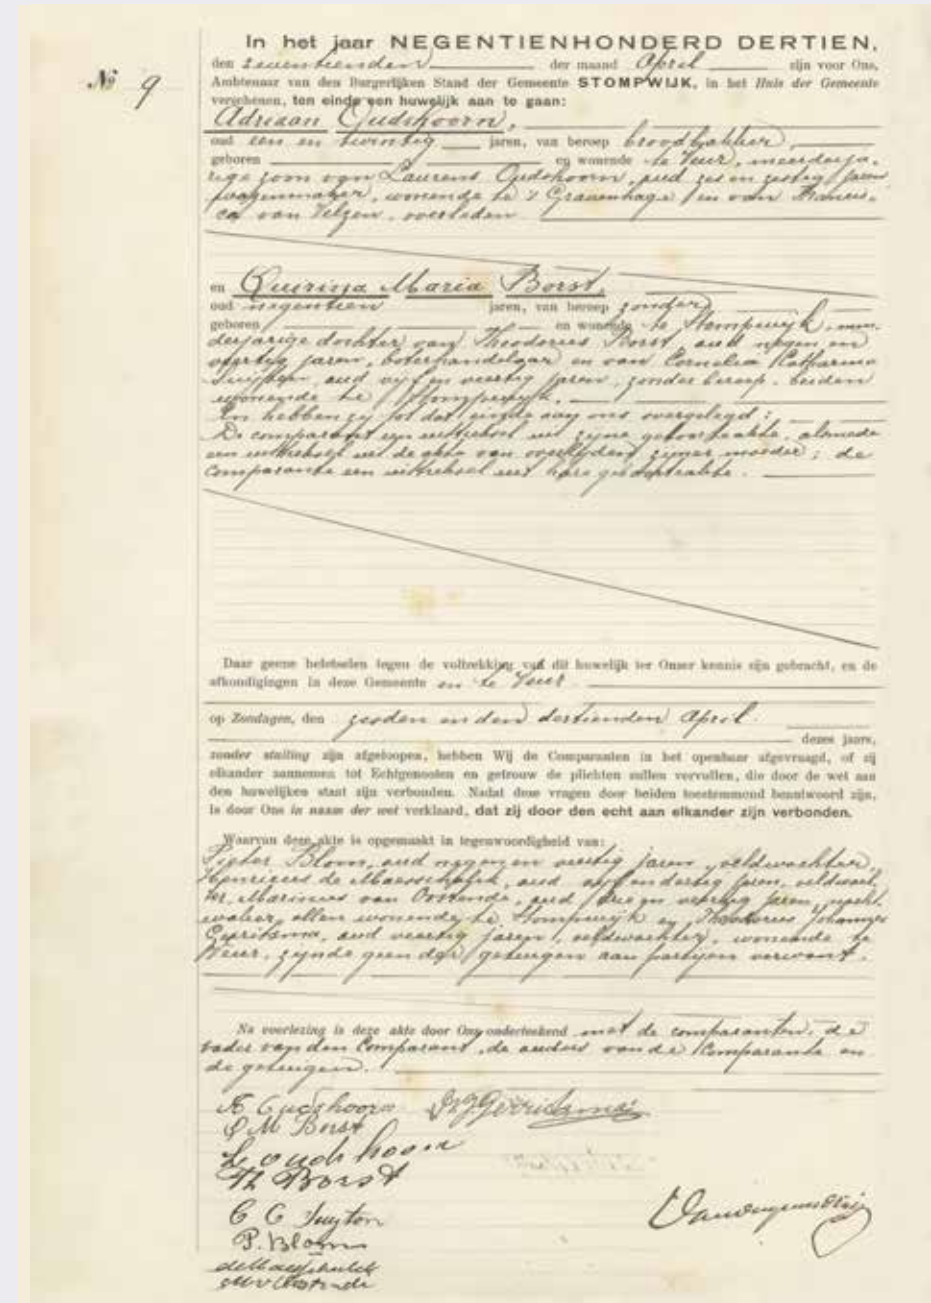 In het jaar NEGENTIENHONDERD DERTIEN,
den zeventienden der maand April zijn voor Ons,
No 9
Ambtenaar van den Burgerlijken Stand der Gemeente STOMPWIJK, in het Huis der Gemeente
verschenen, ten einde een huwelijk aan te gaan:
Adriaan Oudshoorn,
oud een en twintig jaren, van beroep broodbakker,
geboren en wonende te Veur, meerderja-
rige zoon van Laurens Oudshoorn, oud zes en zestig jaren
wagenmaker, wonende te 's Gravenhage en van Francis-
ca van Velzen, overleden
en Quirina Maria Borst,
oud negentien jaren, van beroep zonder
geboren en wonende te Stompwijk, min-
derjarige dochter van Theodorus Borst, oud negen en
veertig jaren, boterhandelaar en van Cornelia Catharina
oud vijf en veertig jaren, zonder beroep, beiden
wonende te Stompwijk.
En hebben zij tot dat einde aan ons overgelegd:
De comparant een uittreksel uit zijne geboorteakte, alsmede
een uittreksel uit de akte van overlijden zijner moeder; de
Comparante een uittreksel uit hare geboorteakte.
Daar geene beletselen tegen de voltrekking van dit huwelijk ter Onzer kennis zijn gebracht, en de
afkondigingen in deze Gemeente en te Veur
op Zondagen, den zesden en den dertienden April
dezes jaars,
zonder stuiting zijn afgeloopen, hebben Wij de Comparanten in het openbaar afgevraagd, of zij
elkander aannemen tot Echtgenooten en getrouw de plichten zullen vervullen, die door de wet aan
den huwelijken staat zijn verbonden. Nadat deze vragen door beiden toestemmend beantwoord zijn,
is door Ons in naam der wet verklaard, dat zij door den echt aan elkander zijn verbonden.
Waarvan deze akte is opgemaakt in tegenwoordigheid van:
Pieter Blom, oud negen en veertig jaren, veldwachter,
Henricus de Maesschalck, oud vijf en dertig jaren, veldwach-
ter, Marinus van Oostende, oud drie en veertig jaren, nacht-
waker, allen wonende te Stompwijk en Theodorus Johannes
Gerritsma, oud veertig jaren, veldwachter, wonende te
Veur, zijnde geen der getuigen aan partijen verwant.
Na voorlezing is deze akte door Ons onderteekend met de comparanten, de
vader van den Comparant, de ouders van de Comparante en
de getuigen.
A Oudshoorn
Q M Borst
L oudshoorn
Th Borst
C C Suyten
P. Blom
de Maesschalck
M v Oostende
Gerritsma